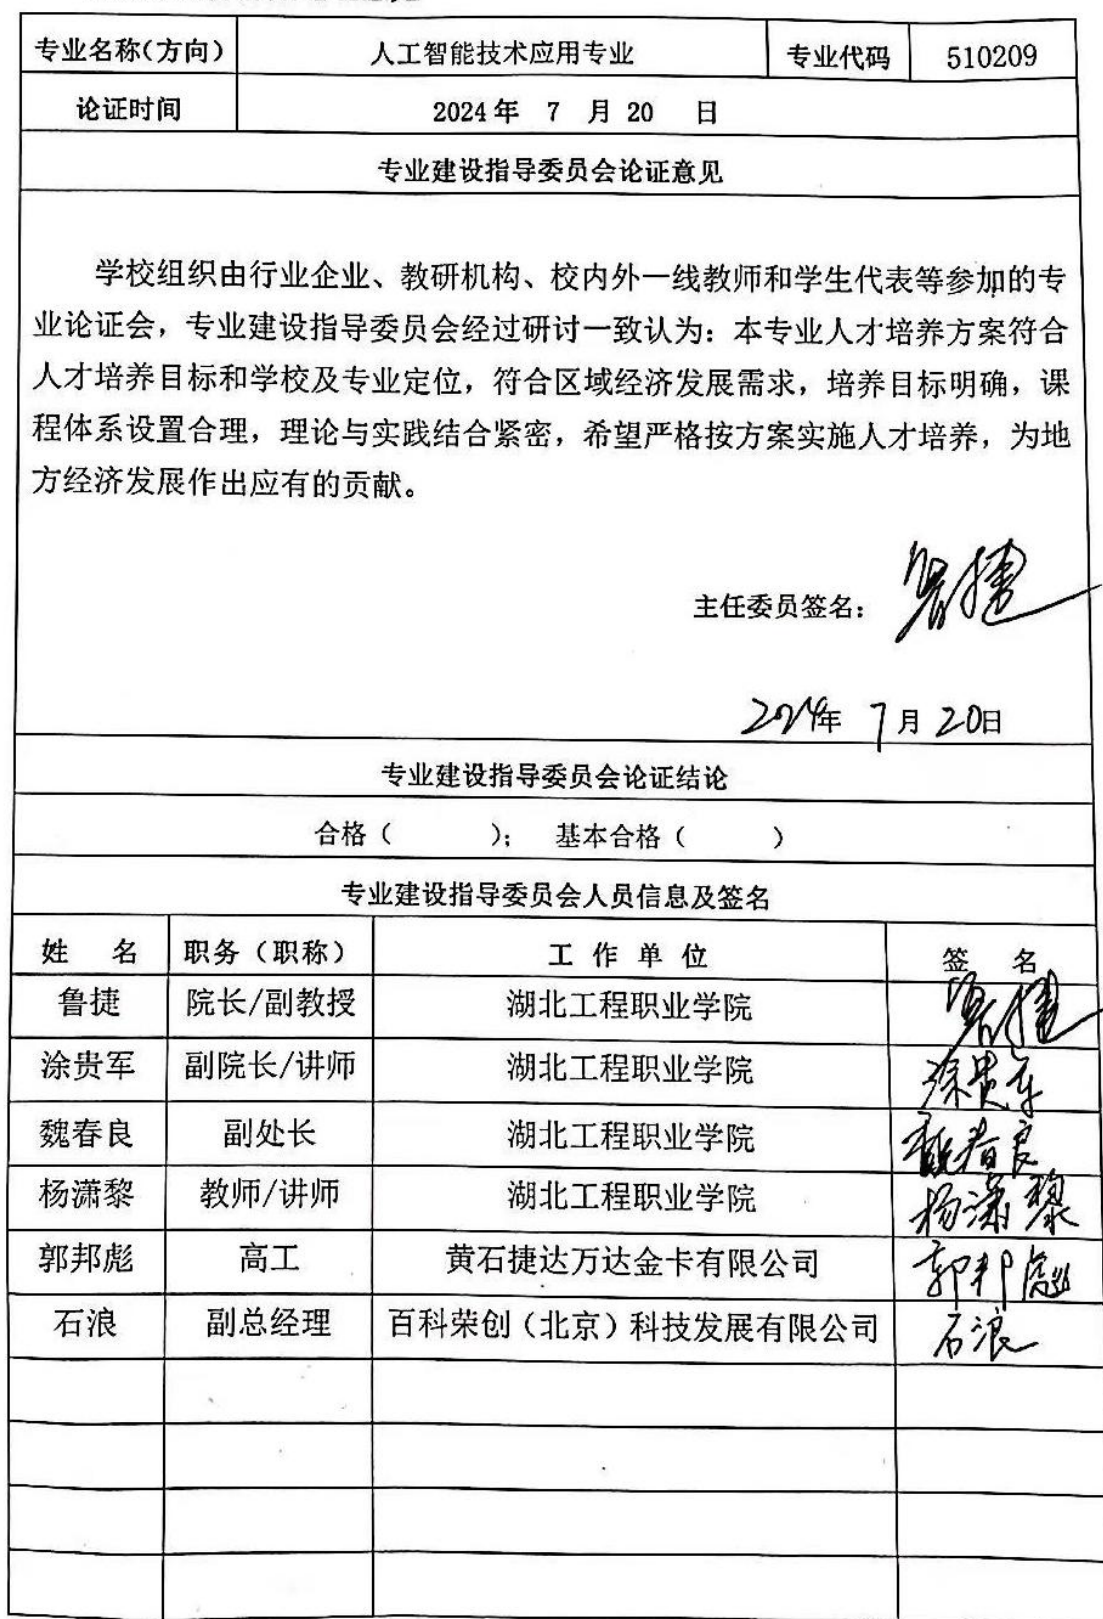 专业名称(方向) 人工智能技术应用专业 专业代码 510209
论证时间 2024年 7 月 20 日
专业建设指导委员会论证意见
学校组织由行业企业、教研机构、校内外一线教师和学生代表等参加的专
业论证会，专业建设指导委员会经过研讨一致认为：本专业人才培养方案符合
人才培养目标和学校及专业定位，符合区域经济发展需求，培养目标明确，课
程体系设置合理，理论与实践结合紧密，希望严格按方案实施人才培养，为地
方经济发展作出应有的贡献。
主任委员签名： 鲁捷
2024年 7月20日
专业建设指导委员会论证结论
合格（ ）； 基本合格（ ）
专业建设指导委员会人员信息及签名
姓 名 职务（职称） 工 作 单 位 签 名
鲁捷 院长/副教授 湖北工程职业学院 鲁捷
涂贵军 副院长/讲师 湖北工程职业学院 涂贵军
魏春良 副处长 湖北工程职业学院 魏春良
杨潇黎 教师/讲师 湖北工程职业学院 杨潇黎
郭邦彪 高工 黄石捷达万达金卡有限公司 郭邦彪
石浪 副总经理 百科荣创（北京）科技发展有限公司 石浪